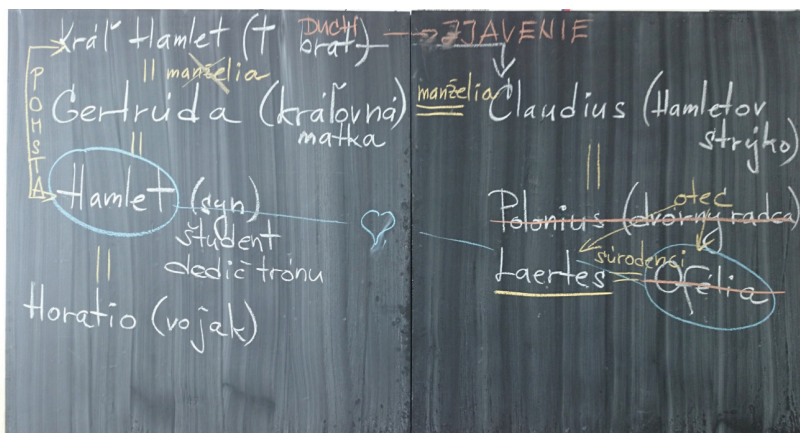 Kráľ Hamlet († brat) DUCH → ZJAVENIE
manželia
POMSTA
Gertrúda (kráľovná) matka
manželia
Claudius (Hamletov strýko)
Hamlet (syn)
študent
dedič trónu
Horatio (vojak)
otec
Polonius (dvorný radca)
súrodenci
Laertes = Ofélia